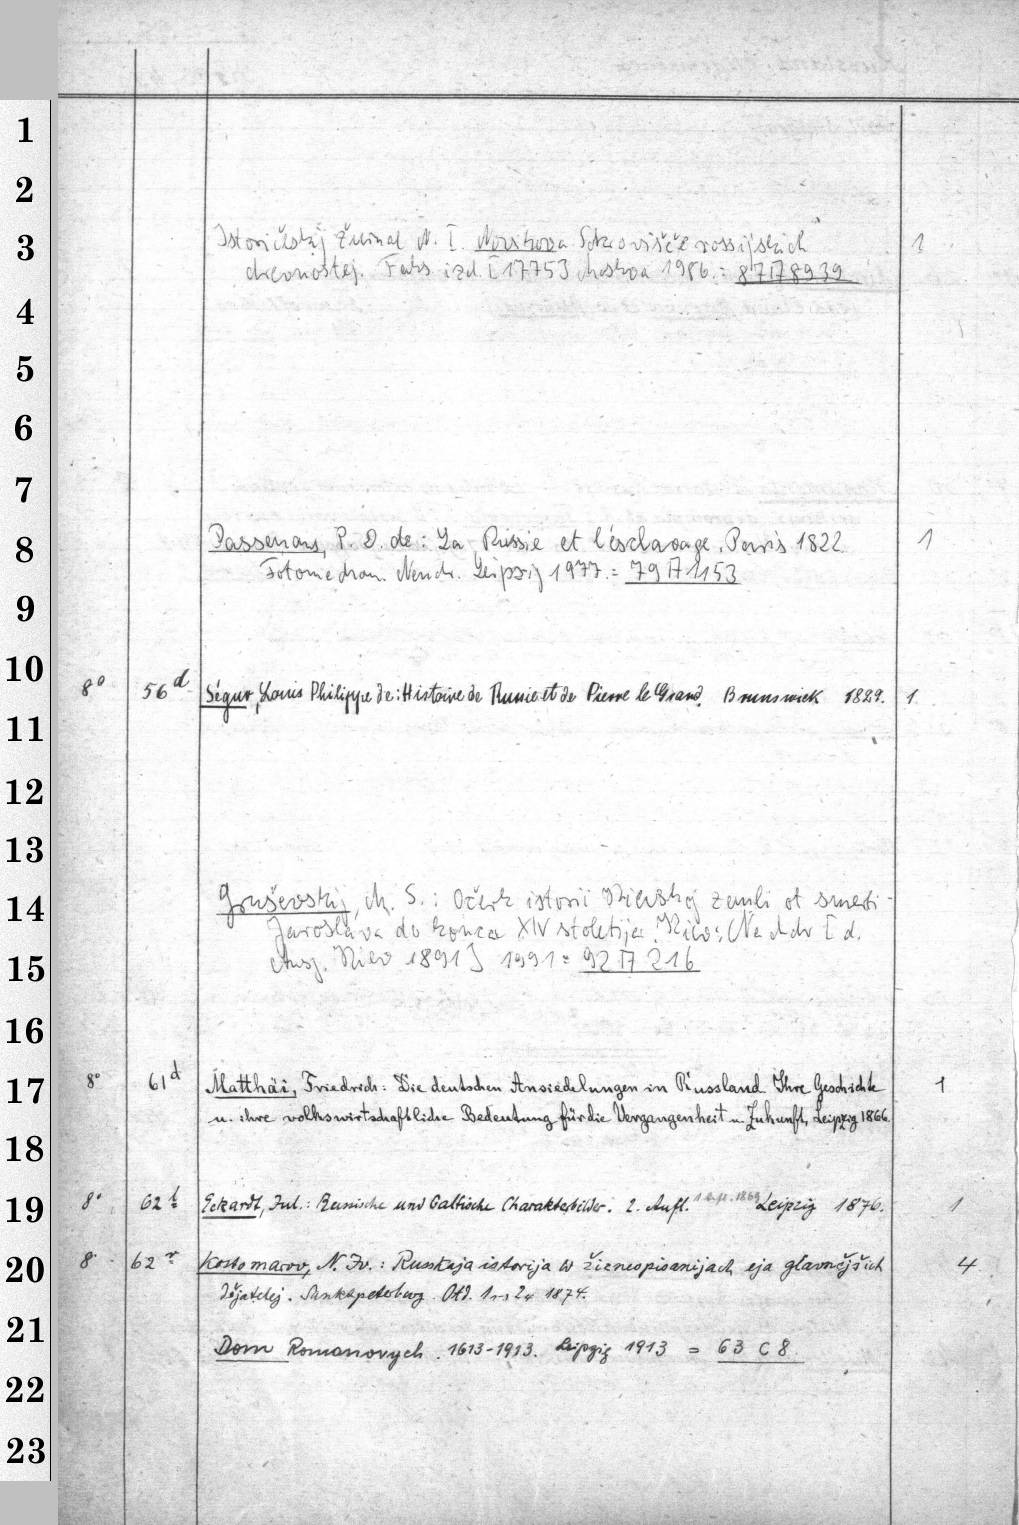 1
2
3 Istoričeskij žurnal N. I. Novikova Sokrovišče rossijskich 1
drevnostej. Faks. izd. [1775] Moskva 1986. = 87 8939
4
5
6
7
8 Passenans, P. D. de: La Russie et l'esclavage. Paris 1822. 1
Fotomechan. Neudr. Leipzig 1977. = 79 1153
9
10 8° 56 d Ségur, Louis Philippe de: Histoire de Russie et de Pierre le Grand. Brunswick 1829. 1
11
12
13
14 Gruševskij, M. S.: Očerk istorii Kievskoj zemli ot smerti
Jaroslava do konca XIV stoletija. Kiev: (Nachdr. [d.
15 Ausg. Kiev 1891] 1991 = 92 216
16
17 8° 61 d Matthäi, Friedrich: Die deutschen Ansiedelungen in Russland. Ihre Geschichte 1
u. ihre volkswirtschaftliche Bedeutung für die Vergangenheit u. Zukunft, Leipzig 1866.
18
19 8° 62 Eckardt, Jul.: Russische und baltische Charakterbilder. 2. Aufl. Leipzig 1876. 1
20 8° 62 Kostomarov, N. Iv.: Russkaja istorija w žizneopisanijach eja glavnějšich 4
dějatelej. Sanktpeterburg. Otd. 1 2 1874.
21 Dom Romanovych. 1613-1913. Leipzig 1913 = 63 C 8
22
23